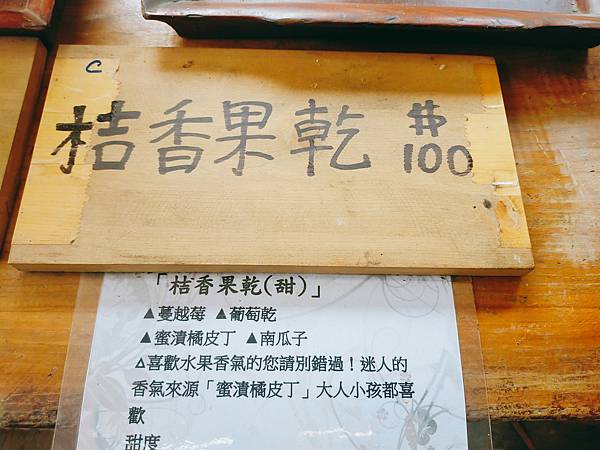 C
桔香果乾 $100
「桔香果乾(甜)」
▲蔓越莓 ▲葡萄乾
▲蜜漬橘皮丁 ▲南瓜子
△喜歡水果香氣的您請別錯過！迷人的
香氣來源「蜜漬橘皮丁」大人小孩都喜
歡
甜度